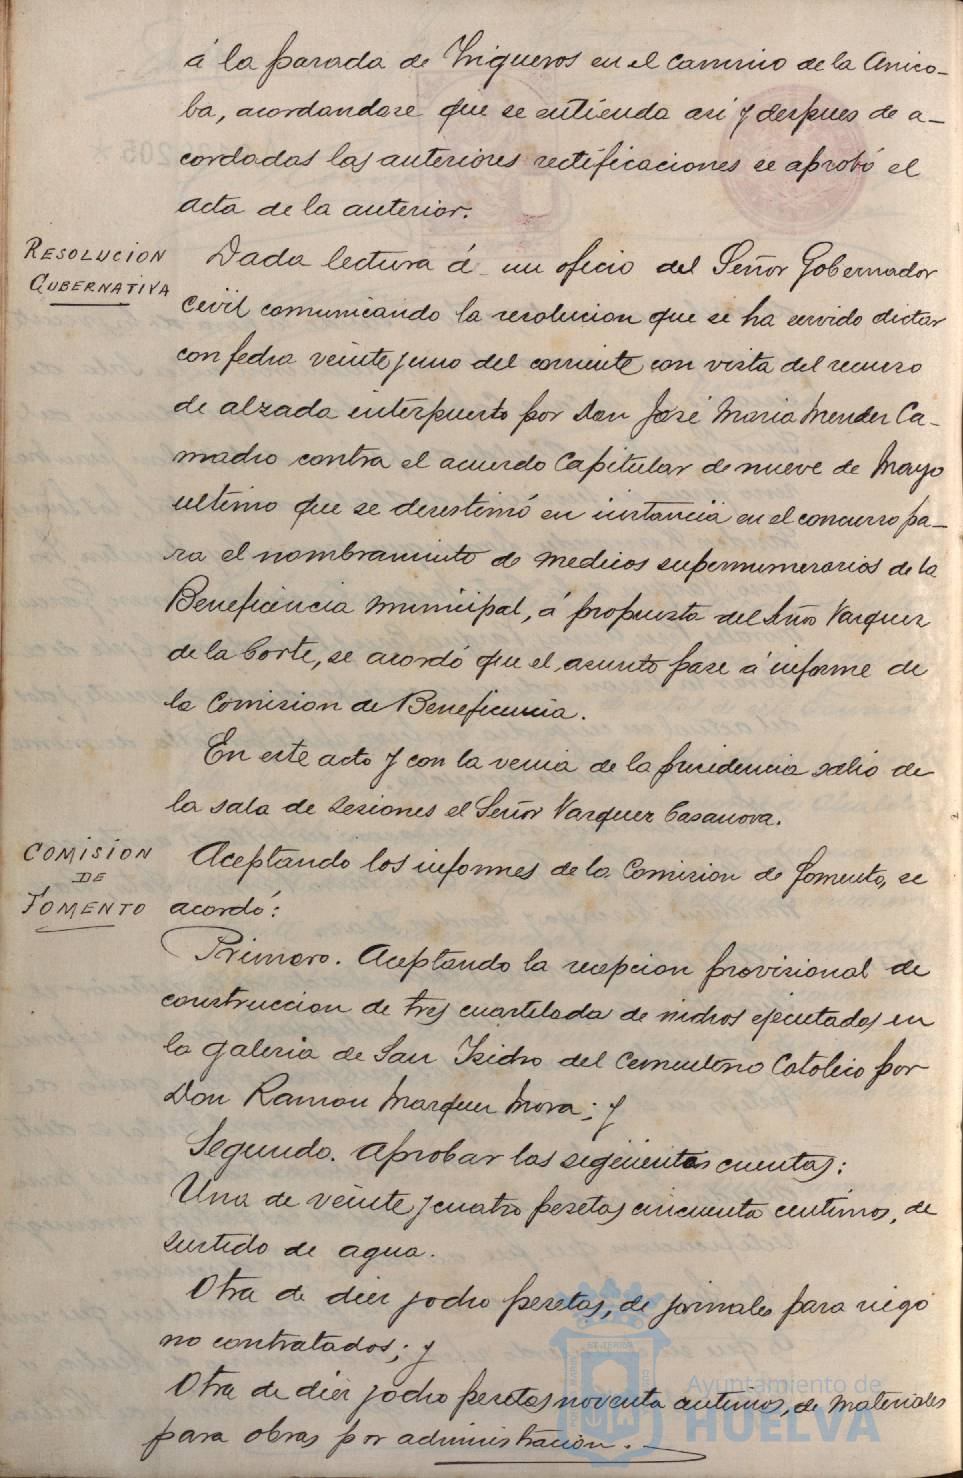 á la parada de Trigueros en el camino de la Anico-
ba, acordandose que se entienda asi y despues de a-
cordadas las anteriores rectificaciones se aprobó el
acta de la anterior.
RESOLUCION
GUBERNATIVA
Dada lectura á un oficio del Señor Gobernador
Civil comunicando la resolucion que se ha servido dictar
con fecha veinte y uno del corriente con vista del recurso
de alzada interpuesto por Don José Maria Mendez Ca-
macho contra el acuerdo Capitular de nueve de Mayo
ultimo que se desestimó en instancia en el concurso pa-
ra el nombramiento de medicos supernumerarios de la
Beneficencia Municipal, á propuesta del Sñor Vazquez
de la Corte, se acordó que el asunto pase á informe de
la Comision de Beneficencia.
En este acto y con la venia de la presidencia salio de
la sala de sesiones el Señor Vazquez Casanova.
COMISION
DE
FOMENTO
Aceptando los informes de la Comision de Fomento, se
acordó:
Primero. Aceptando la recepcion provisional de
construccion de tres cuartelada de nichos ejecutados en
la galeria de San Isidro del Cementerio Catolico por
Don Ramon Marquez Mora; y
Segundo. Aprobar las següientes cuentas:
Una de veinte y cuatro pesetas cincuenta centimos, de
surtido de agua.
Otra de diez y ocho pesetas, de jornales para riego
no contratados; y
Otra de diez y ocho pesetas noventa centimos, de materiales
para obras por administracion.
Ayuntamiento de
HUELVA